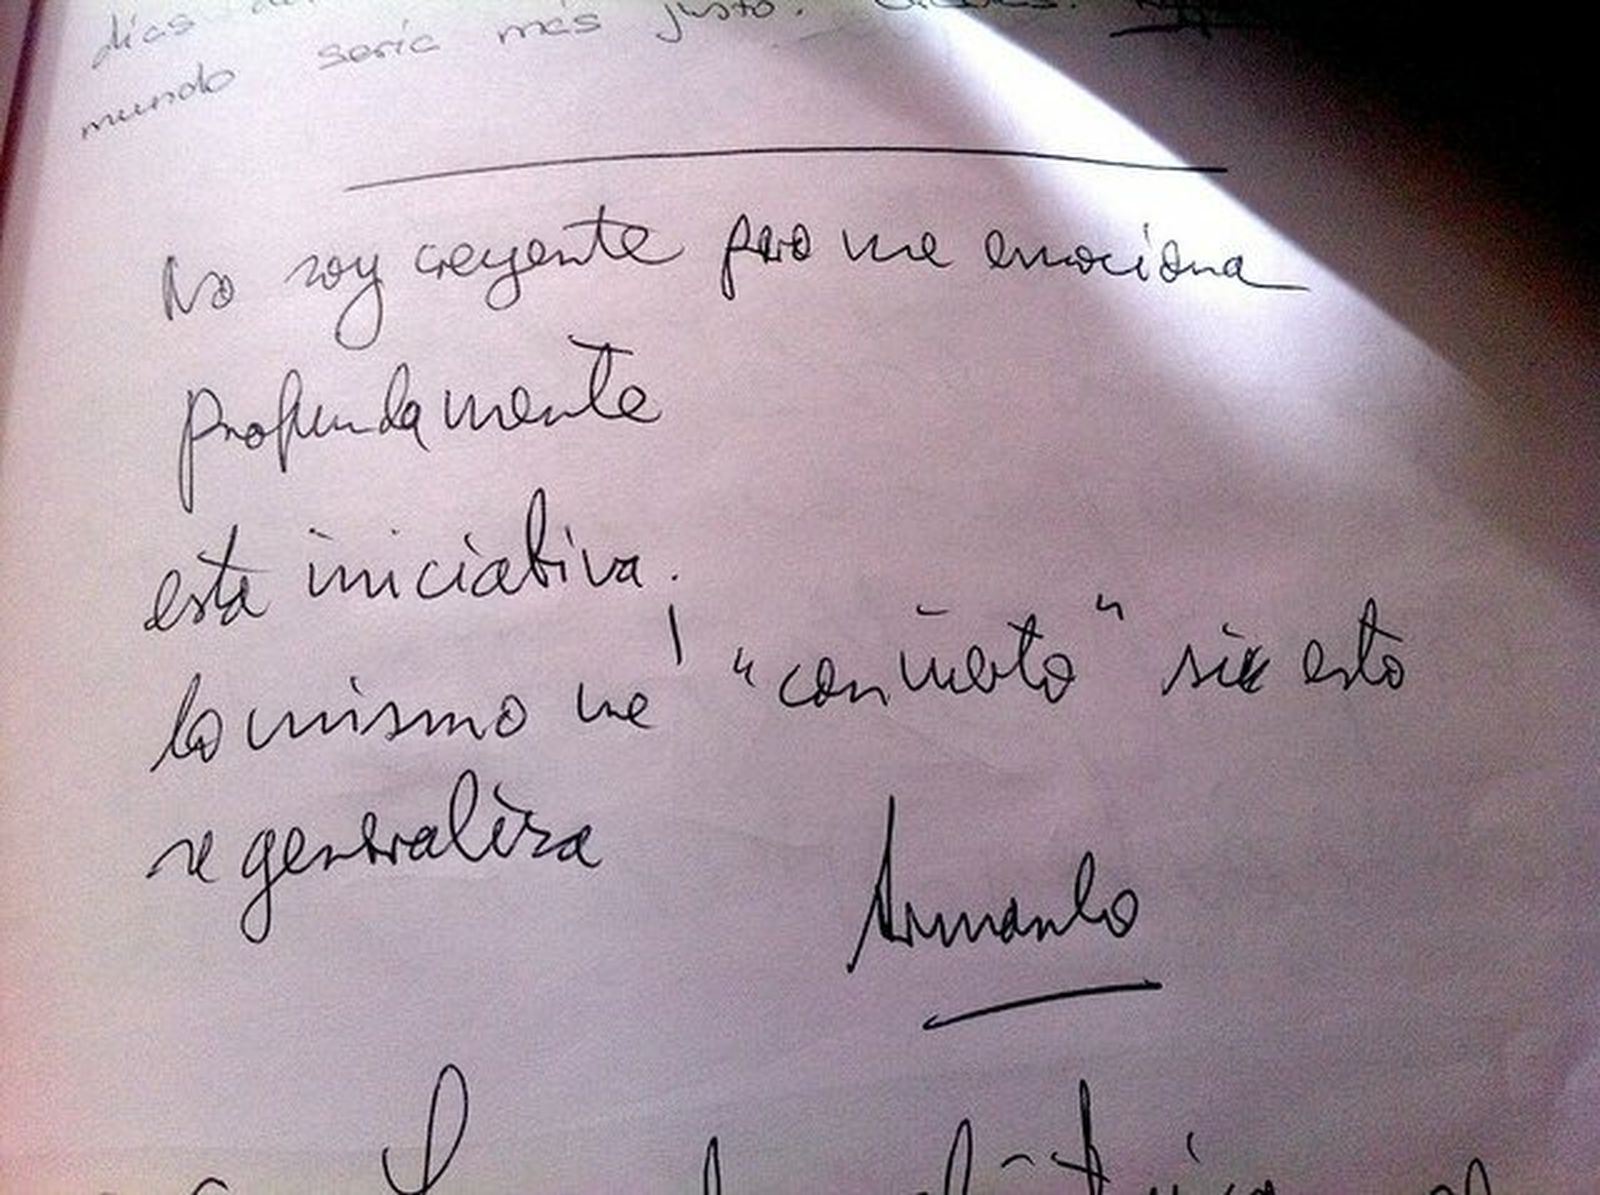 días
mundo sería más justo.
No soy creyente pero me emociona
profundamente
esta iniciativa.
lo mismo me "convierto" si esto
se generaliza
Armando